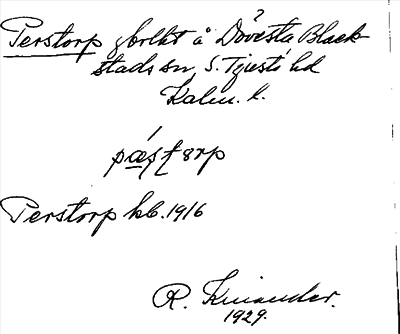 Perstorp gbrlkt å Dövesta Black-
stads sn, S. Tjusts hd
Kalm. l.
pæ̱ʃtørp
Perstorp kb. 1916
R. Kinander.
1929.